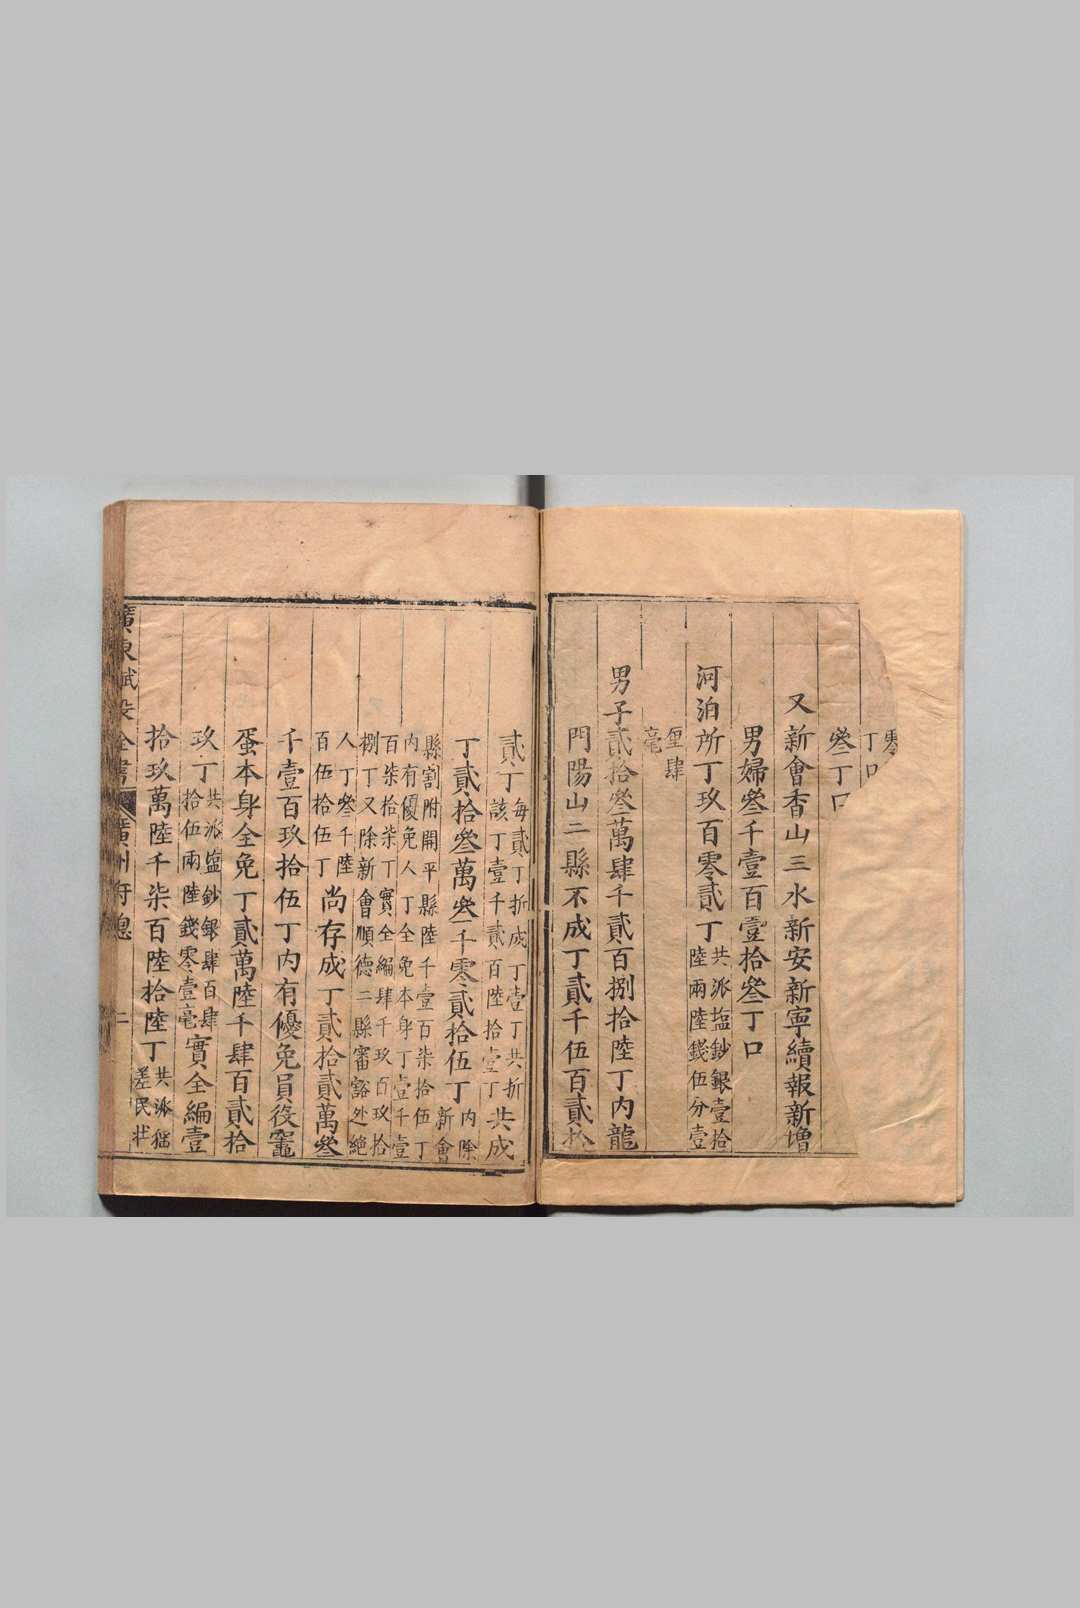 零
丁口
叄丁口
又新會香山三水新安新寧續報新增
男婦叄千壹百壹拾叄丁口
河泊所丁玖百零貳丁共派塩鈔銀壹拾
陸兩陸錢伍分壹
厘肆
毫
男子貳拾叄萬肆千貳百捌拾陸丁內龍
門陽山二縣不成丁貳千伍百貳拾
貳丁每貳丁折成丁壹丁共折
該丁壹千貳百陸拾壹丁共成
丁貳拾叄萬叄千零貳拾伍丁內除
新會
縣割附開平縣陸千壹百柒拾伍丁
內有優免人丁全免本身丁壹千壹
百柒拾柒丁實全編肆千玖百玖拾
捌丁又除新會順德二縣審豁外絕
人丁叄千陸
百伍拾伍丁尚存成丁貳拾貳萬叄
千壹百玖拾伍丁內有優免員役竈
蛋本身全免丁貳萬陸千肆百貳拾
玖丁共派塩鈔銀肆百肆
拾伍兩陸錢零壹毫實全編壹
拾玖萬陸千柒百陸拾陸丁共派猺
差民壯
廣東賦役全書 廣州府總 二